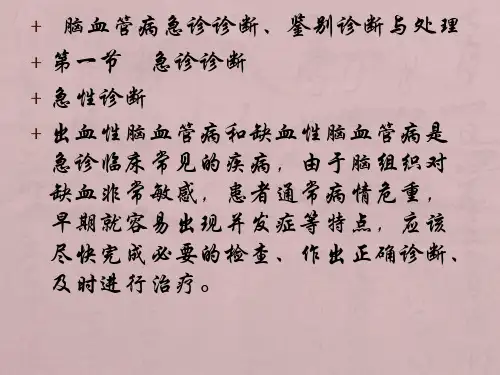 + 脑血管病急诊诊断、鉴别诊断与处理
+ 第一节 急诊诊断
+ 急性诊断
+ 出血性脑血管病和缺血性脑血管病是
急诊临床常见的疾病，由于脑组织对
缺血非常敏感，患者通常病情危重，
早期就容易出现并发症等特点，应该
尽快完成必要的检查、作出正确诊断、
及时进行治疗。